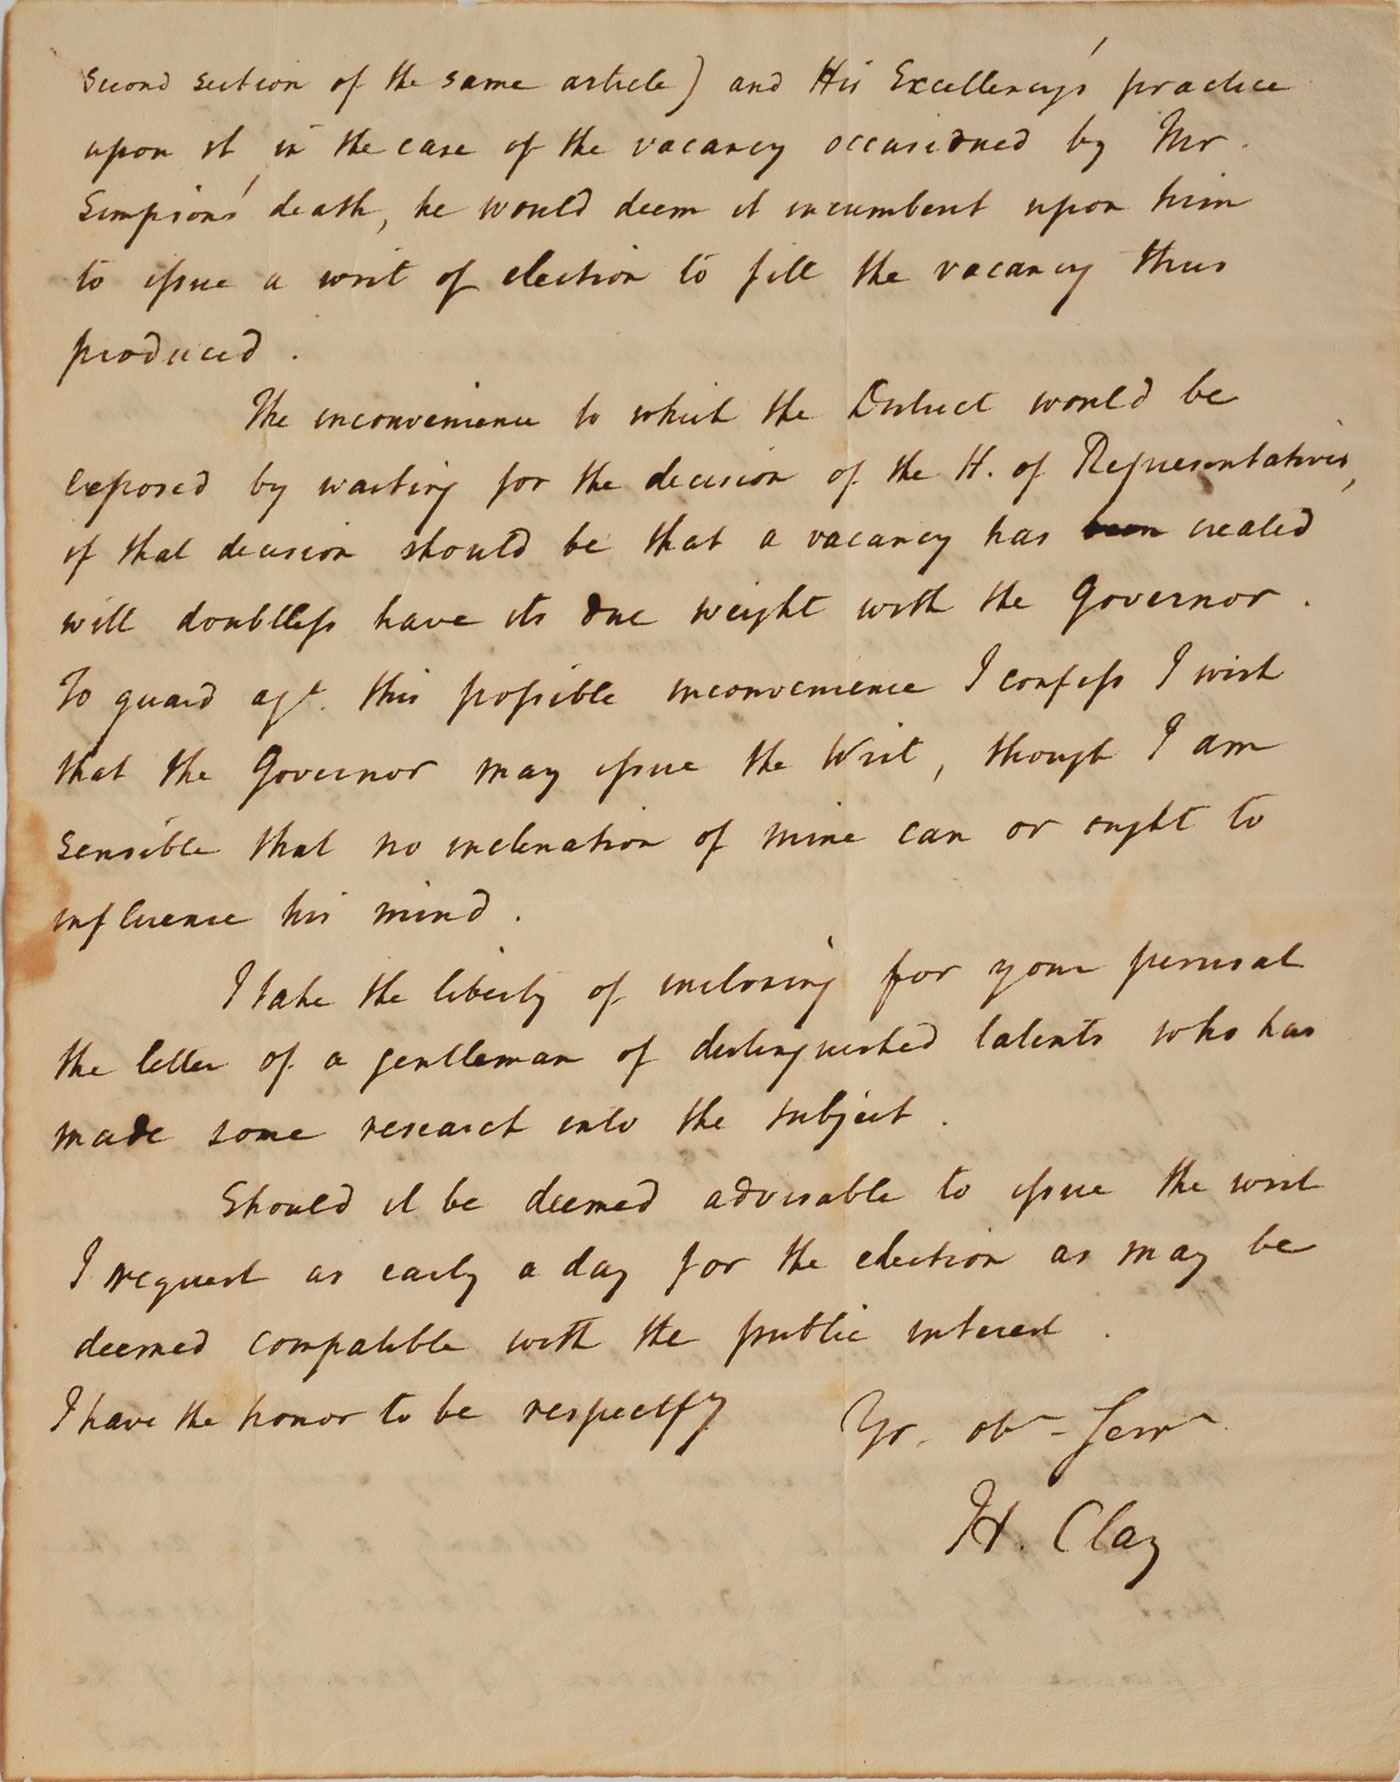 second section of the same article) and His Excellency's practice
upon it in the case of the vacancy occasioned by Mr.
Simpson's death, he would deem it incumbent upon him
to issue a writ of election to fill the vacancy thus
produced.
The inconvenience to which the District would be
exposed by waiting for the decision of the H. of Representatives,
if that decision should be that a vacancy has been created
will doubtless have its due weight with the Governor.
To guard agt. this possible inconvenience I confess I wish
that the Governor may issue the Writ, though I am
sensible that no inclination of mine can or ought to
influence his mind.
I take the liberty of inclosing for your perusal
the letter of a gentleman of distinguished talents who has
made some research into the subject.
Should it be deemed advisable to issue the writ
I request as early a day for the election as may be
deemed compatible with the public interest.
I have the honor to be respectfy
Yr. obt. Servt.
H. Clay